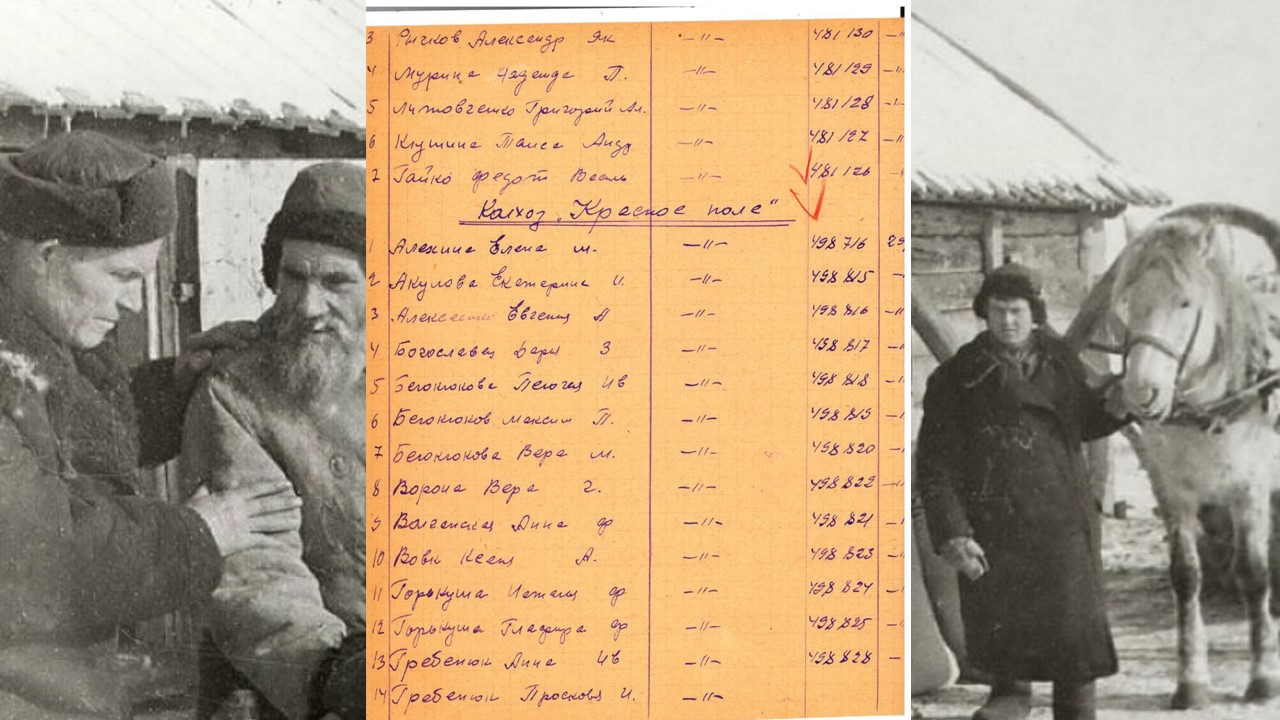 3 Рычков Александр Як —"— 481130 —"
4 Мурина Надежда П. —"— 481129 —"
5 Литовченко Григорий Ал. —"— 481128 —"
6 Клушина Таиса Андр —"— 481127 —"
7 Гайко Федот Васил —"— 481126
Колхоз „Красное поле"
1 Алехина Елена м. —"— 498716 29
2 Акулова Екатерина И. —"— 498815
3 Евгения А —"— 498816 —"
4 Богославец Дарь З —"— 498817
5 Белоконова Пелогея Ив —"— 498818
6 Белоконов Максим П. —"— 498819
7 Белоконова Вера м. —"— 498820
8 Ворона Вера г. —"— 498822
9 Анна ф —"— 498821
10 Вовк Ксения А. —"— 498823
11 Горькуша Наталья ф —"— 498824
12 Горькуша Глафира ф —"— 498825
13 Гребенюк Анна Ив —"— 498828 —
14 Гребенюк Просковья И. —"—